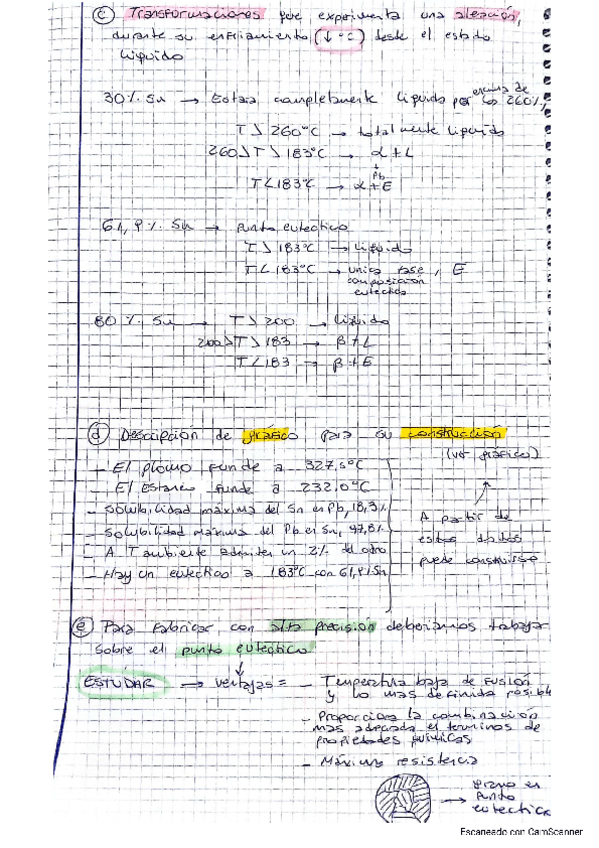 c) Transformaciones que experimenta una aleación,
durante su enfriamiento (↓°C) desde el estado
líquido
30% Sn → Estará completamente líquida por encima de los 260%
T > 260°C → totalmente líquido
260 > T > 183°C → α + L
Pb
T < 183°C → α + E
61,9% Sn → punto eutectico
T > 183°C → Líquido
T < 183°C → unica fase, E
composición
eutectica
80% Sn → T > 200 → líquido
200 > T > 183 → β + L
T < 183 → β + E
d) Descripción de gráfico para su construcción
(ver gráfico)
- El plomo funde a 327,5°C
- El estaño funde a 232,0°C
- Solubilidad máxima del Sn en Pb, 18,3%
- Solubilidad máxima del Pb en Sn, 97,8%
- A T ambiente admiten un 2% del otro
- Hay un eutectico a 183°C con 61,9% Sn
A partir de
estos datos
puede construirse
e) Para fabricar con alta precisión deberíamos trabajar
sobre el punto eutectico
ESTUDIAR → ventajas = - Temperatura baja de fusión
y lo mas definida posible
- Proporciona la combinación
mas adecuada el terminos de
propiedades químicas
- Máxima resistencia
→ plomo en
punto
eutectico
Escaneado con CamScanner